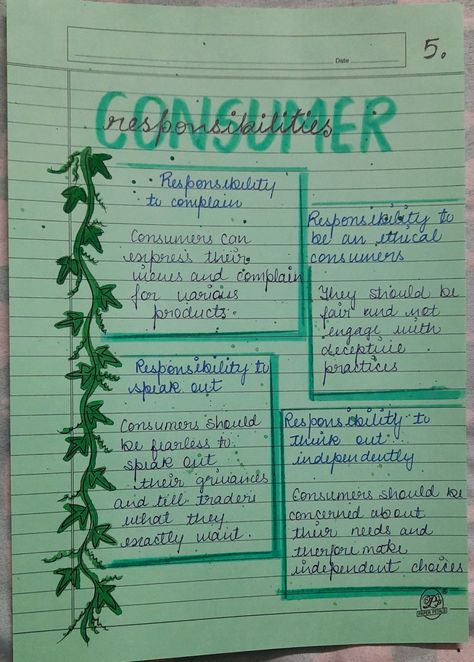 Date
5.
CONSUMER
responsibilities
Responsibility
to complain
Consumers can
express their
views and complain
for various
products.
Responsibility to
be an ethical
consumers
They should be
fair and not
engage with
deceptive
practices
Responsibility to
speak out
Consumers should
be fearless to
speak out
their grivances
and till traders
what they
exactly want.
Responsibility to
think out
independently
Consumers should be
concerned about
their needs and
therfore make
independent choices
PAPER PETALS